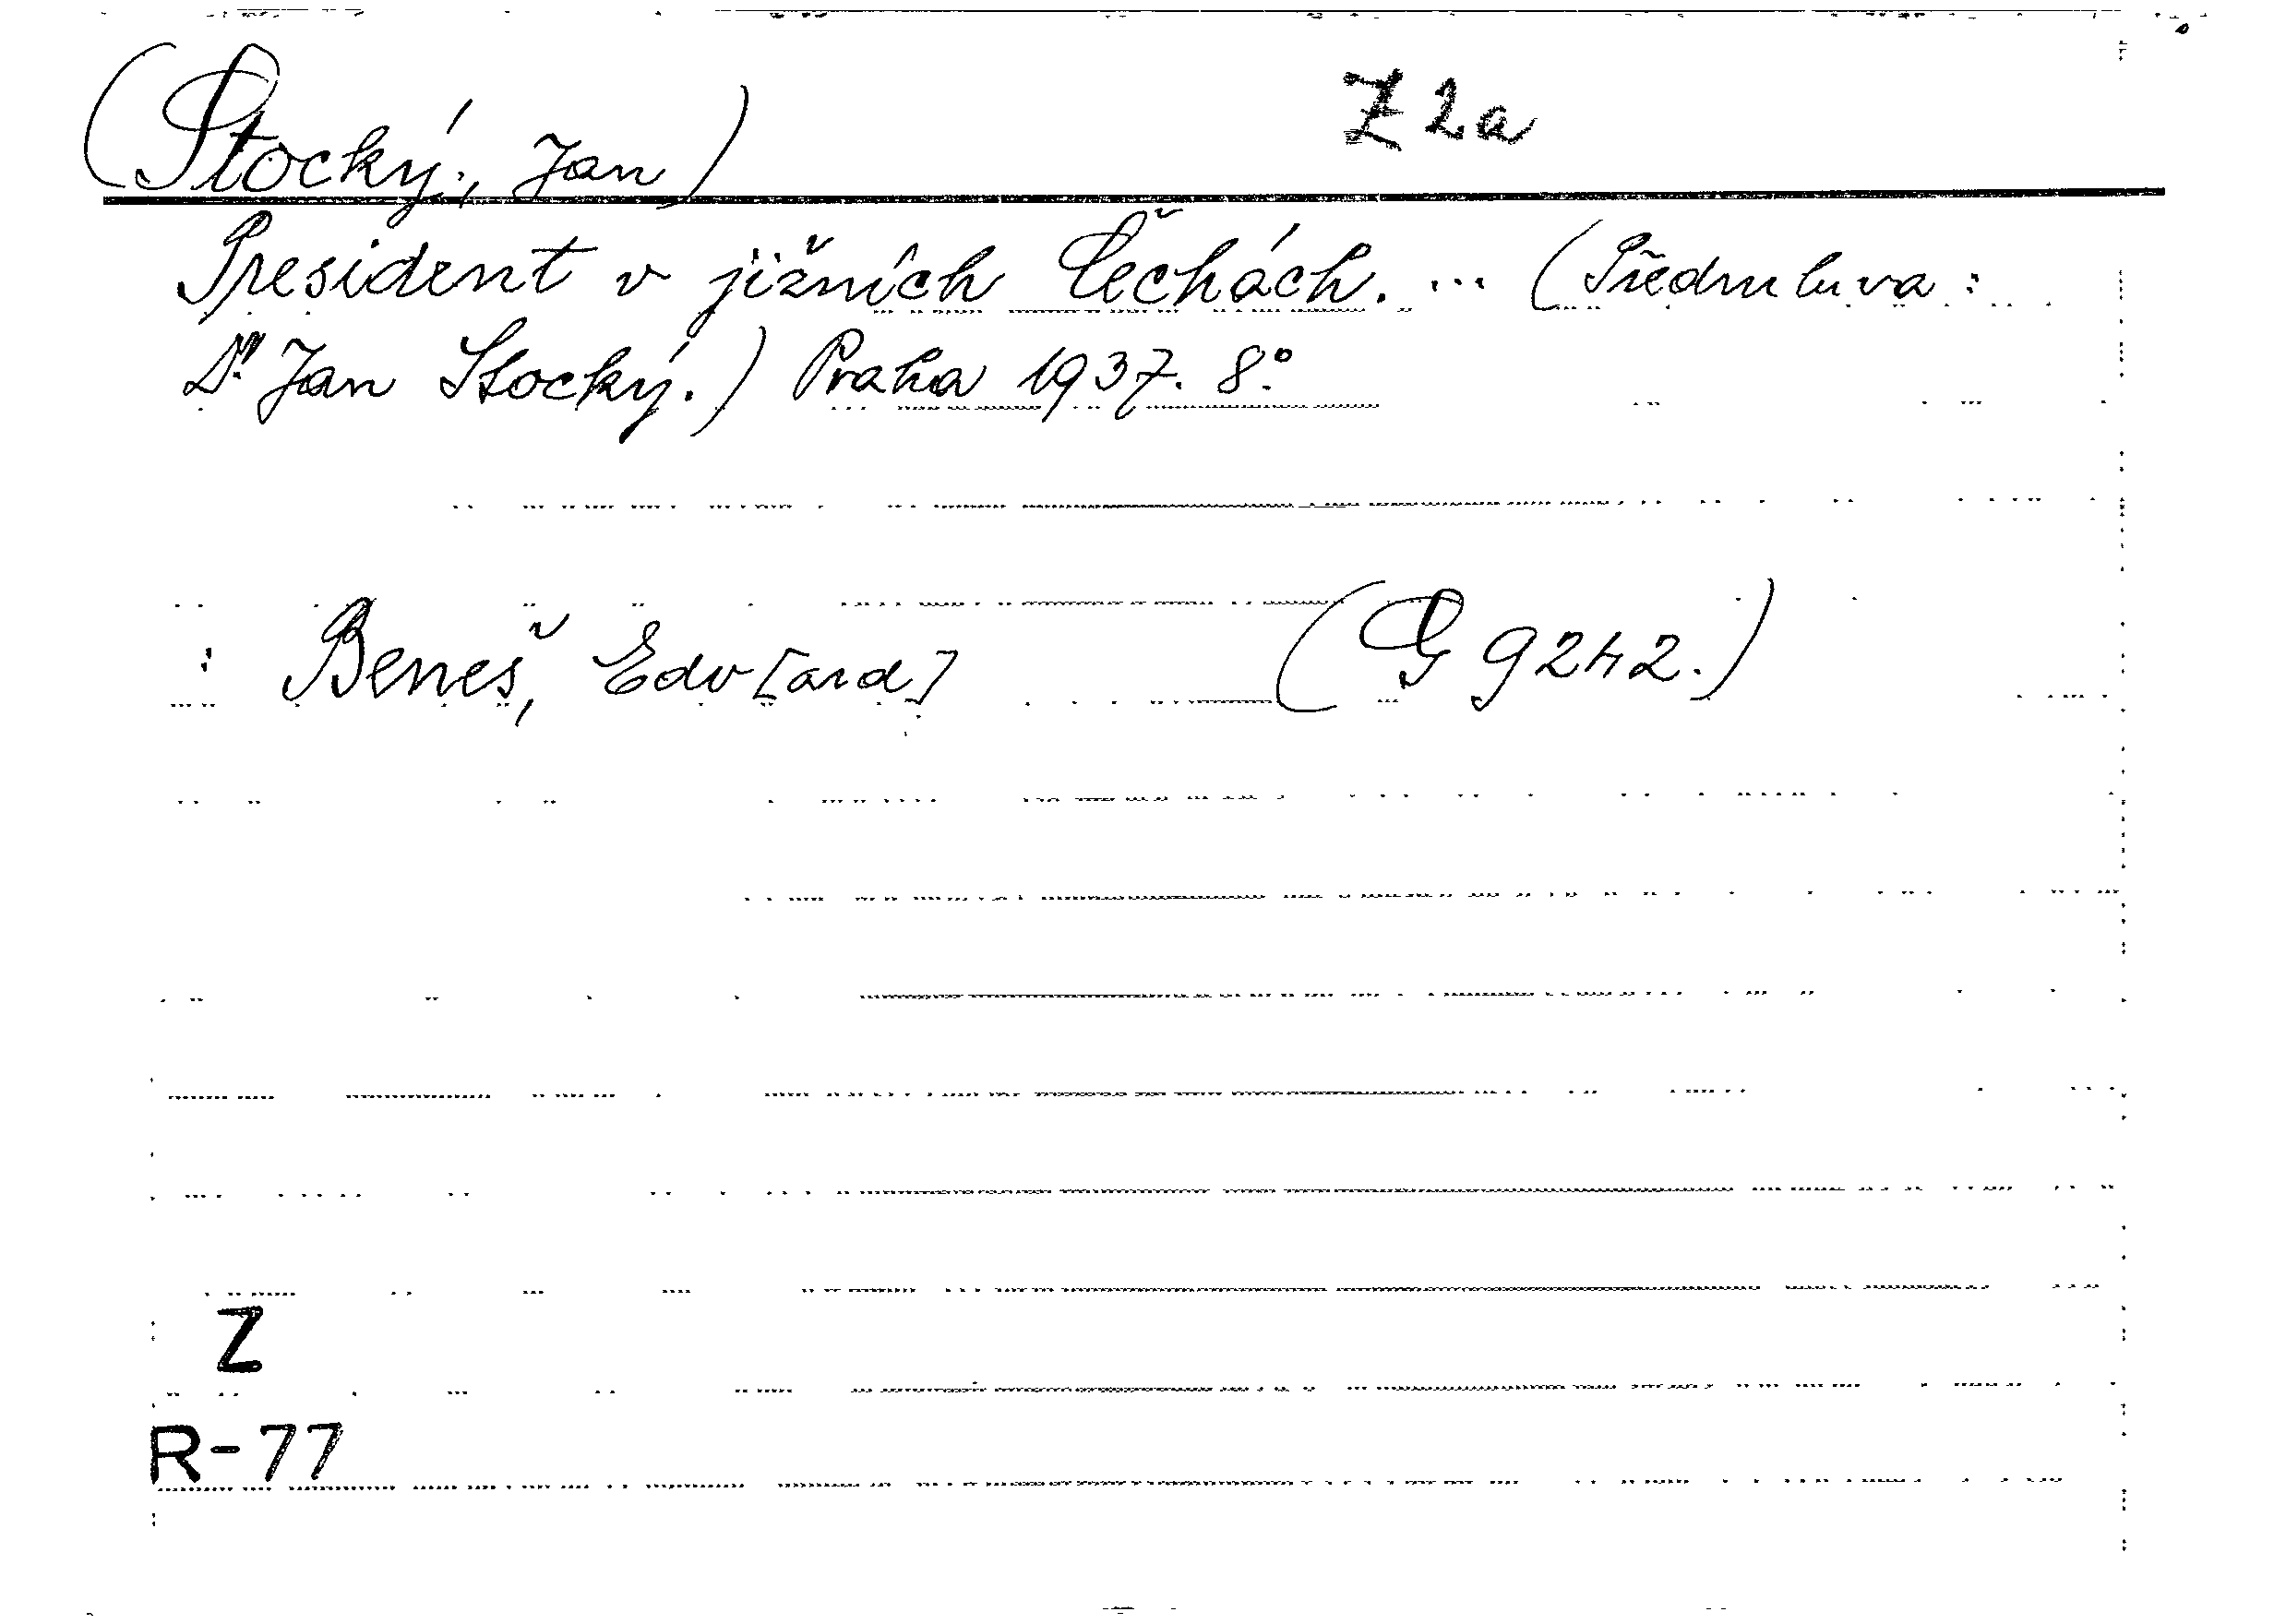 (Stocký, Jan) Z 2a
President v jižních Čechách. ... (Předmluva:
Dr. Jan Stocký.) Praha 1937. 8°.
: Beneš, Edv[ard] (G 9242.)
Z
R-77